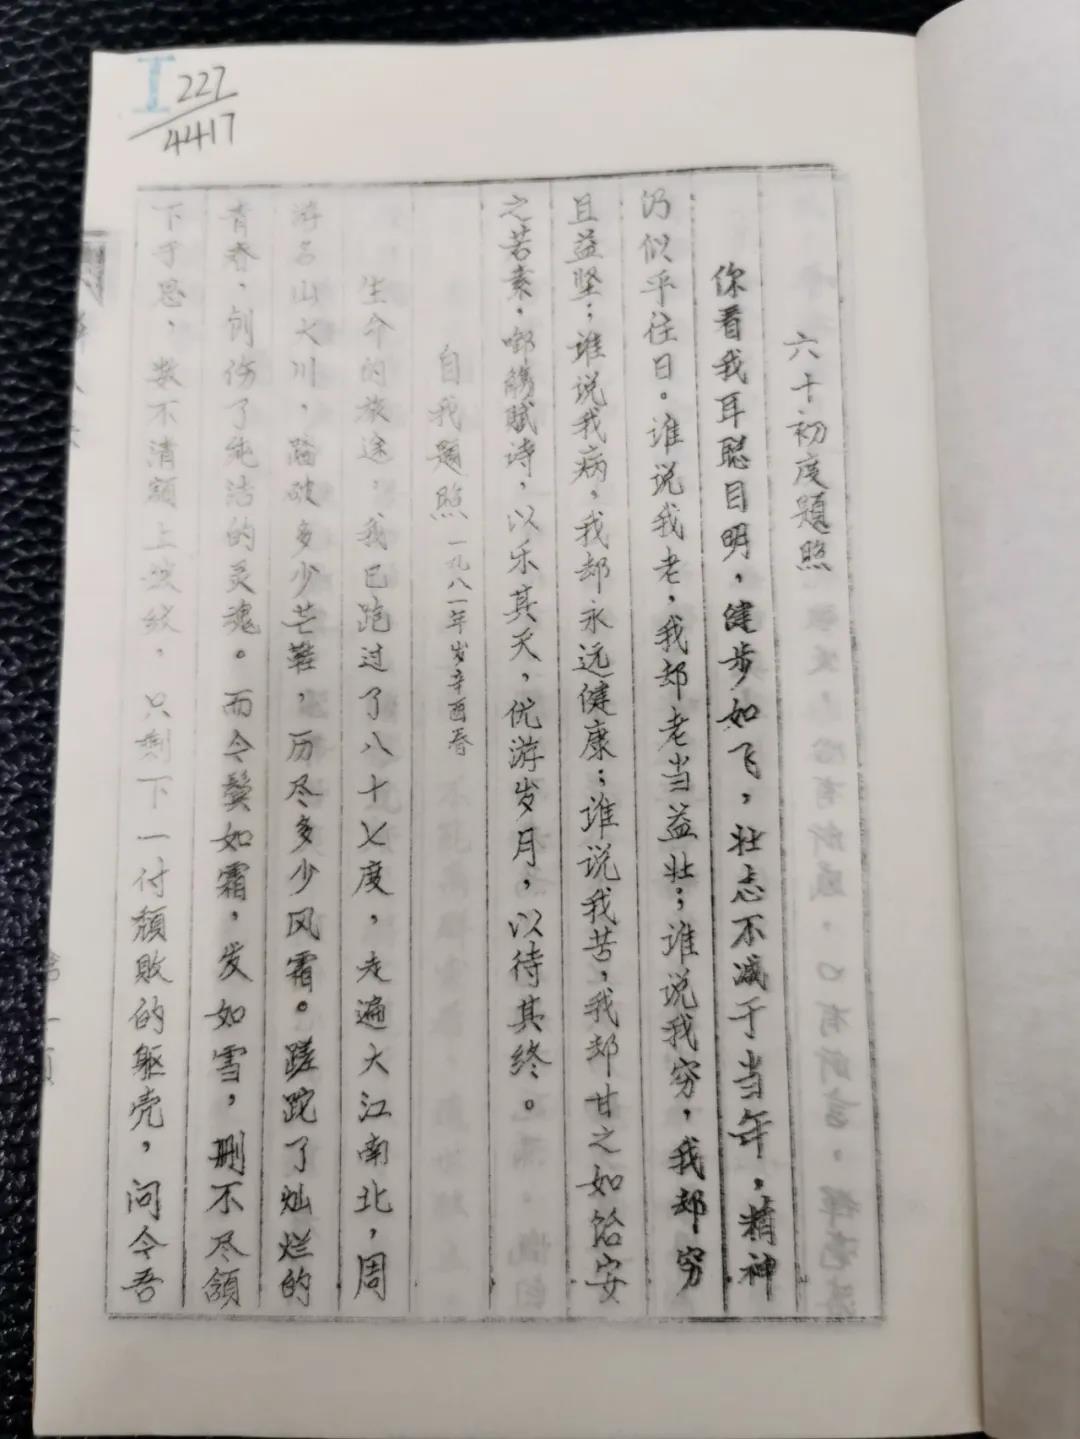 I 227
4417
六十初度题照
你看我耳聪目明，健步如飞，壮志不减于当年，精神
仍似乎往日。谁说我老，我却老当益壮；谁说我穷，我却穷
且益坚；谁说我病，我却永远健康；谁说我苦，我却甘之如饴安
之若素，啣觞赋诗，以乐其天，优游岁月，以待其终。
自我题照 一九八一年岁辛酉春
生命的旅途，我已跑过了八十七度，走遍大江南北，周
游名山大川，踏破多少芒鞋，历尽多少风霜。蹉跎了灿烂的
青春，创伤了纯洁的灵魂。而今鬓如霜，发如雪，删不尽颔
下于思，数不清额上波纹，只剩下一付颓败的躯壳，问今吾